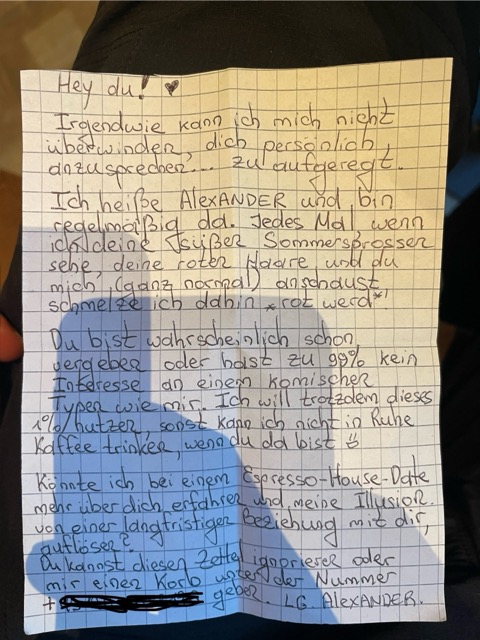 Hey du! ♥
Irgendwie kann ich mich nicht
überwinden, dich persönlich
anzusprechen... zu aufgeregt.
Ich heiße ALEXANDER und bin
regelmäßig da. Jedes Mal, wenn
ich deine süßen Sommersprossen
sehe, deine roten Haare und du
mich (ganz normal) anschaust,
schmelze ich dahin *rot werd*!
Du bist wahrscheinlich schon
vergeben oder hast zu 99% kein
Interesse an einem komischen
Typen wie mir. Ich will trotzdem dieses
1% nutzen, sonst kann ich nicht in Ruhe
Kaffee trinken, wenn du da bist ü
Könnte ich bei einem Espresso-House-Date
mehr über dich erfahren und meine Illusion
von einer langfristigen Beziehung mit dir,
auflösen?
Du kannst diesen Zettel ignorieren oder
mir einen Korb unter der Nummer
+ geben. LG. ALEXANDER.